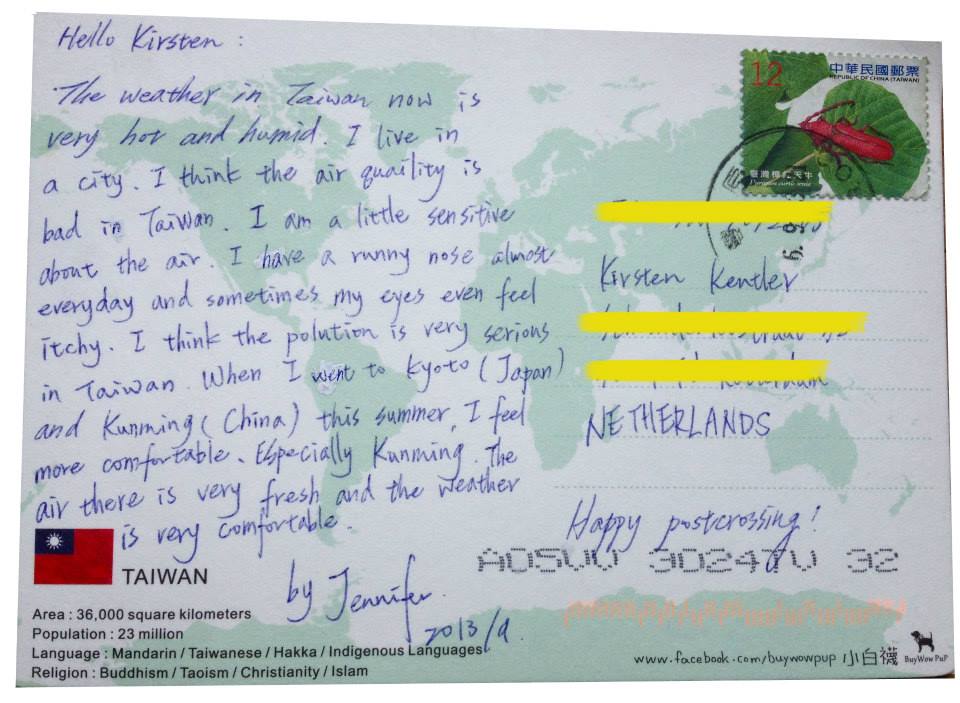 Hello Kirsten :
The weather in Taiwan now is
very hot and humid. I live in
a city. I think the air quaility is
bad in Taiwan. I am a little sensitive
about the air. I have a runny nose almost
everyday and sometimes my eyes even feel
itchy. I think the polution is very serious
in Taiwan. When I went to Kyoto (Japan)
and Kunming (China) this summer, I feel
more comfortable. Especially Kunming. The
air there is very fresh and the weather
is very comfortable.
by Jennifer
2013/9.
TAIWAN
Area : 36,000 square kilometers
Population : 23 million
Language : Mandarin / Taiwanese / Hakka / Indigenous Languages
Religion : Buddhism / Taoism / Christianity / Islam
12
中華民國郵票
REPUBLIC OF CHINA (TAIWAN)
Kirsten Kentler
NETHERLANDS
Happy postcrossing!
32
www.facebook.com/buywowpup 小白襪
BuyWow PuP